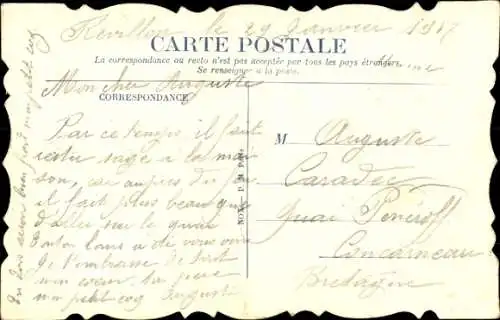 Révillon le 29 Janvier 1917
CARTE POSTALE
La correspondance au recto n'est pas acceptée par tous les pays étrangers.
Se renseigner à la poste.
Mon cher Auguste
CORRESPONDANCE
Par ce temps il faut
rester sage à la mai
son, car auprès du feu
il fait plus beau que
d'aller sur le quai
Tonton Louis a été vous voir
Je t'embrasse de tout
mon cœur, ton père
mon petit coq Auguste
Tu dois être bien
mon petit coq
M Auguste
Caradec
Quai Peneroff
Concarneau
Bretagne